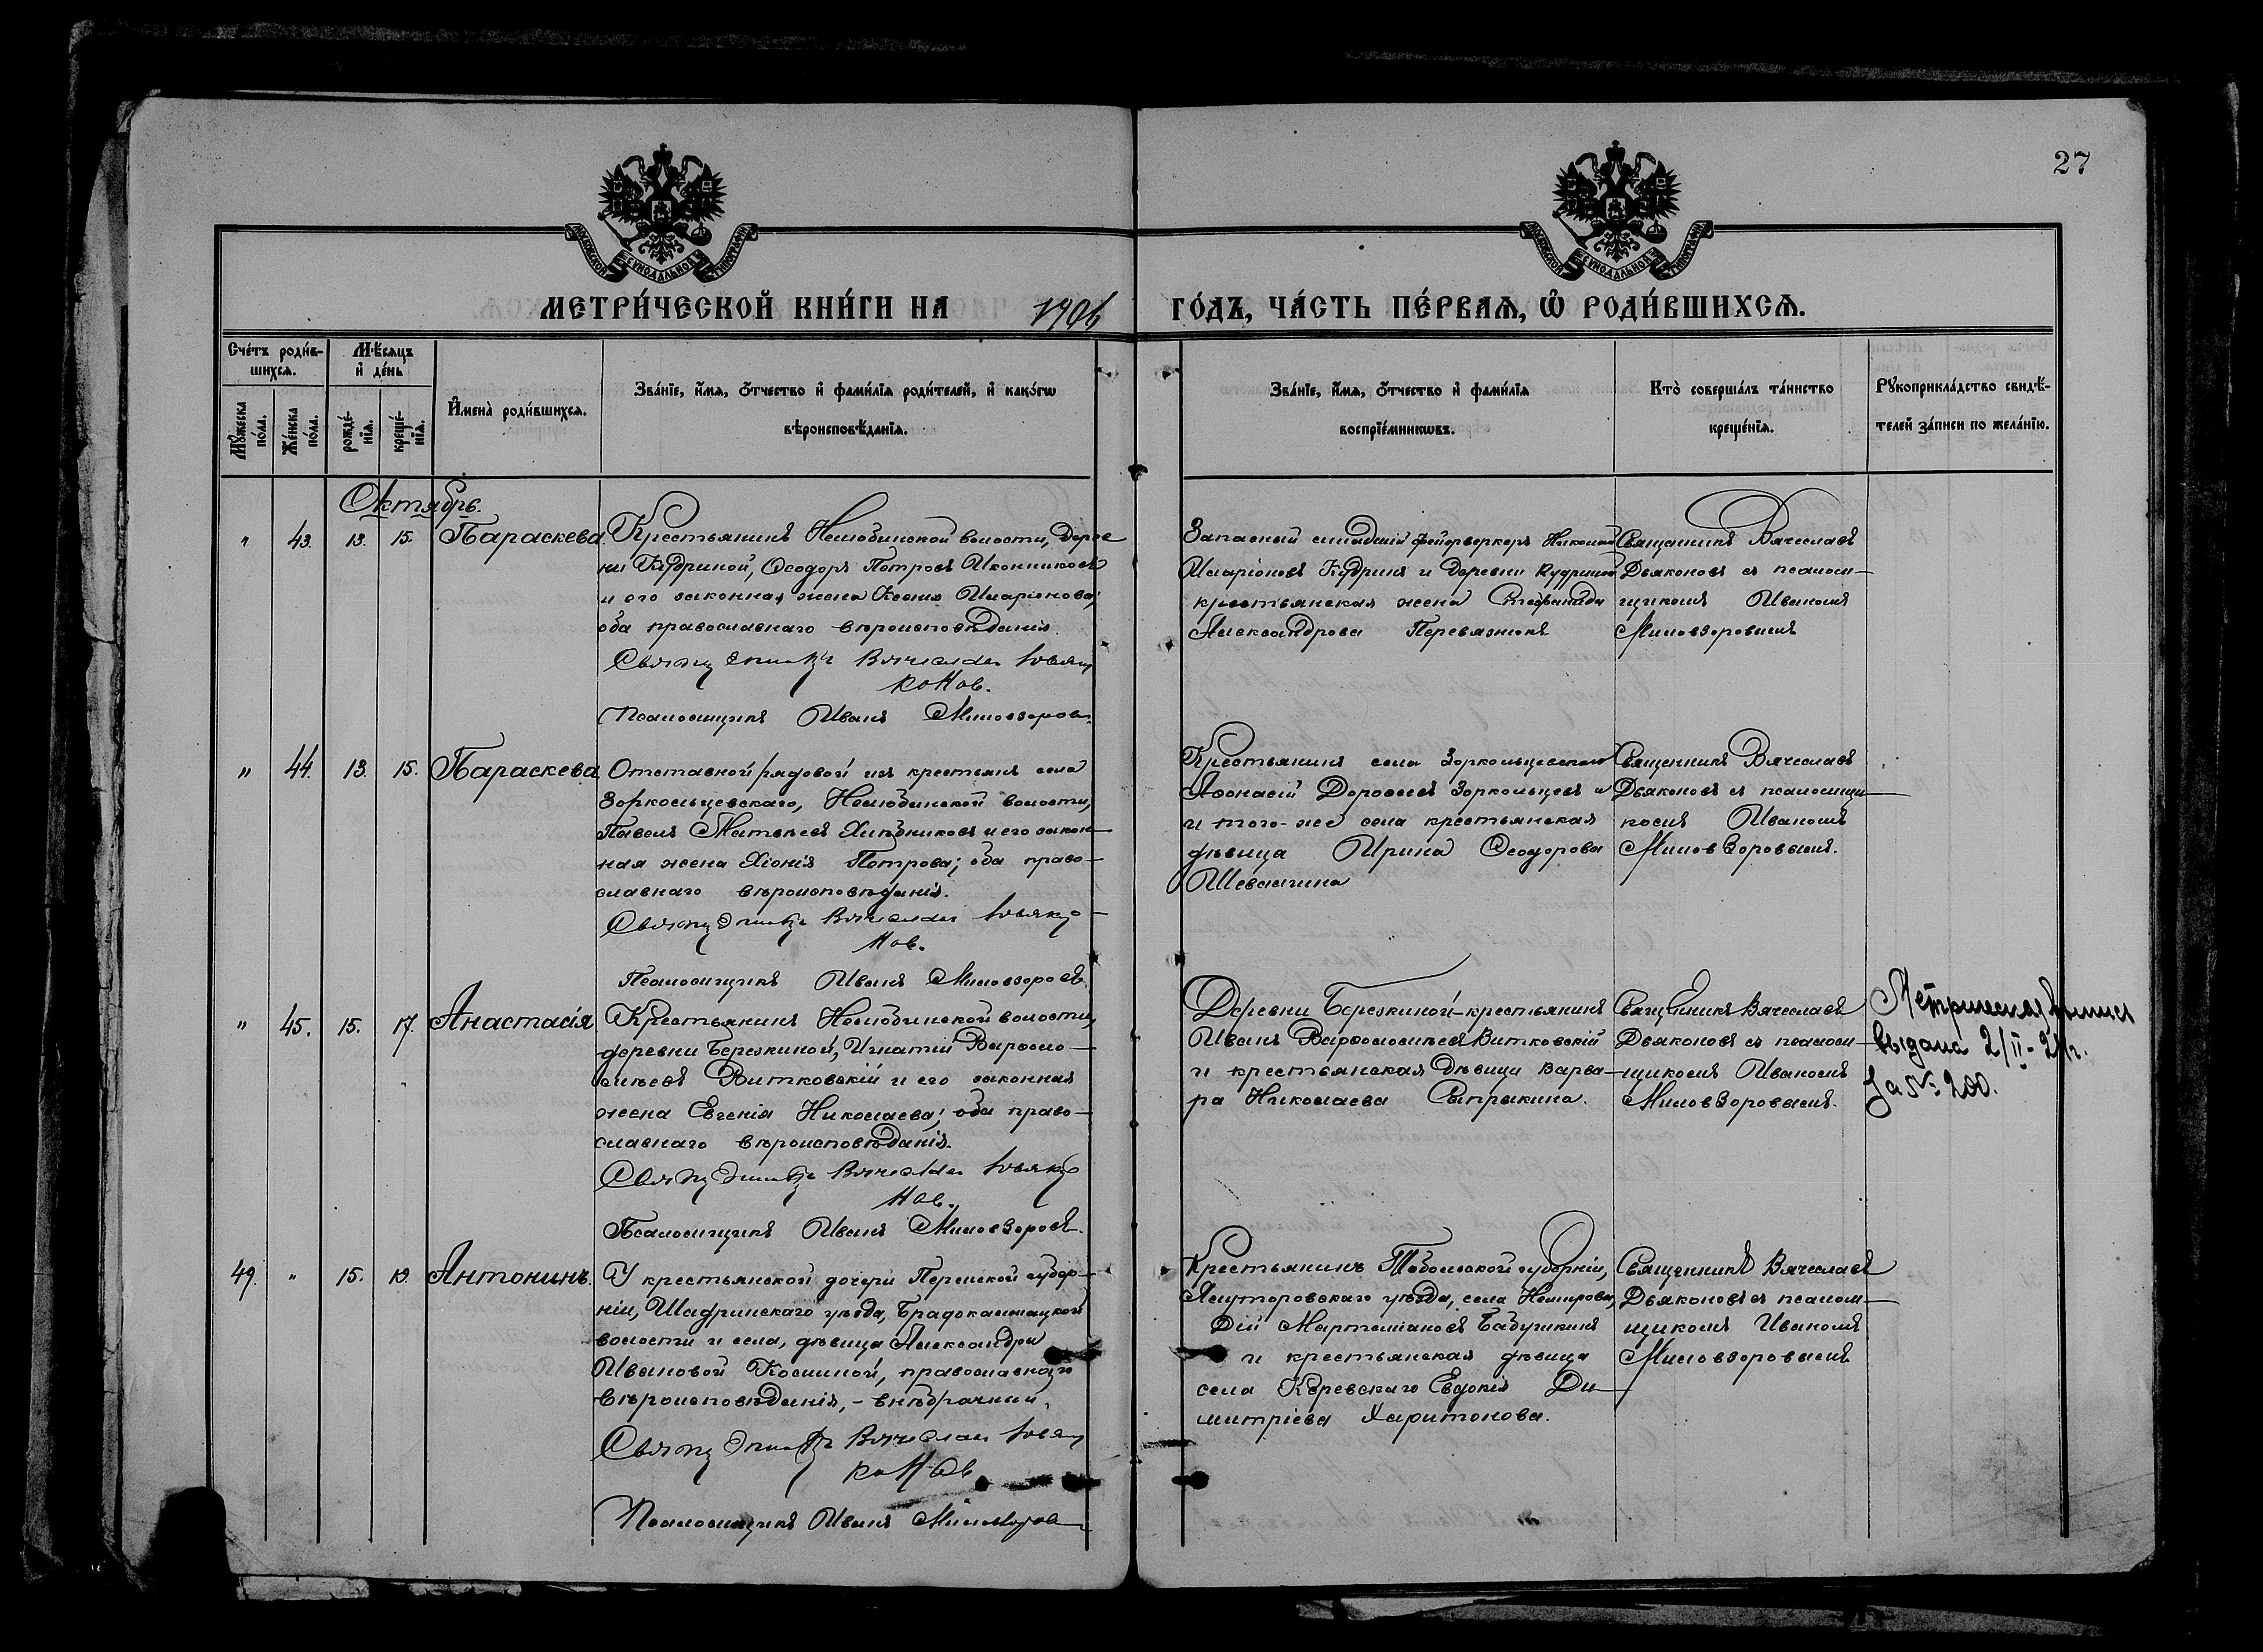 27
МОСКОВСКОЙ СѴНОДАЛЬНОЙ ТИПОГРАФІИ
МОСКОВСКОЙ СѴНОДАЛЬНОЙ ТИПОГРАФІИ
МЕТРИ́ЧЕСКОЙ КНИ́ГИ НА 1906 ГО́ДЪ, ЧА́СТЬ ПЕ́РВАѦ, Ѽ РОДИ́ВШИХСѦ.
Сче́тъ роди́в-
шихсѧ.
Мꙋ́жеска по́ла.
Же́нска по́ла.
Мѣ́сяцъ и҆ де́нь
рожде́-
нїѧ.
креще́-
нїѧ.
И҆мена̀ роди́вшихсѧ.
Зва́нїе, и҆́мѧ, ѻ҆́тчество и҆ фами́лїѧ роди́телей, и҆ како́гѡ
вѣроисповѣ́данїѧ.
Зва́нїе, и҆́мѧ, ѻ҆́тчество и҆ фами́лїѧ
воспрїе́мникѡвъ.
Кто̀ соверша́лъ та́инство
креще́нїѧ.
Рꙋкоприкла́дство свидѣ́-
телей за́писи по жела́нїю.
Октябрь.
" 43. 13. 15. Параскева.
Крестьянинъ Нелюбинской волости, дерев
ни Кудриной, Ѳеодоръ Петровъ Иконниковъ
и его законная жена Ксенія Иларіонова;
оба православнаго вѣроисповѣданія.
Священникъ Вячеслав Дья
конов.
Псаломщикъ Иванъ Миловзоровъ.
Запасный младшій фейерверкеръ Николай
Иларіоновъ Кудринъ и деревни Кудриной
крестьянская жена Стефанида
Александрова
Священникъ Вячеславъ
Дьяконовъ съ псалом-
щикомъ Иваномъ
Миловзоровымъ
" 44. 13. 15. Параскева
Отставной рядовой изъ крестьянъ села
Зоркольцевскаго, Нелюбинской волости,
Павелъ Матвѣевъ Хлѣбниковъ и его закон-
ная жена Хіонія Петрова; оба право-
славнаго вѣроисповѣданія.
Священникъ Вячеслав Дьяко-
нов.
Псаломщикъ Иванъ Миловзоровъ.
Крестьянинъ села Зоркольцевскаго
Аѳонасій Дороѳеевъ Зоркольцевъ и
и того-же села крестьянская
дѣвица Ирина Ѳеодорова
Шевелгина
Священникъ Вячеславъ
Дьяконовъ съ псаломщи-
комъ Иваномъ
Миловзоровымъ.
" 45. 15. 17. Анастасія
Крестьянинъ Нелюбинской волости,
деревни Березкиной, Игнатій Варѳоло-
меевъ Витковскій и его законная
жена Евгенія Николаева; оба право-
славнаго вѣроисповѣданія.
Священникъ Вячеслав Дьяко
нов.
Псаломщикъ Иванъ Миловзоровъ.
Деревни Березкиной крестьянинъ
Иванъ Варѳоломеевъ Витковскій
и крестьянская дѣвица Варва-
ра Николаева Сыпрыкина.
Священникъ Вячеславъ
Дьяконовъ съ псалом-
щикомъ Иваномъ
Миловзоровымъ.
Метрическая выпись
выдана 2/II-
За № 200.
49. " 15. 19. Антонинъ.
У крестьянской дочери Пермской губер-
ніи, Шадринскаго уѣзда, Бродокалмацкой
волости и села, дѣвицы Александры
Ивановой Косминой, православнаго
вѣроисповѣданія, - внѣбрачный.
Священникъ Вячеслав Дья
конов
Псаломщикъ Иванъ Миловзоров
Крестьянинъ Тобольской губерніи,
Ялуторовскаго уѣзда, села Немирова,
Дій Мартемьановъ Бабушкинъ
и крестьянская дѣвица
села Керевскаго Евдокія Ди-
митріева Харитонова.
Священникъ Вячеславъ
Дьяконовъ съ псалом-
щикомъ Иваномъ
Миловзоровымъ